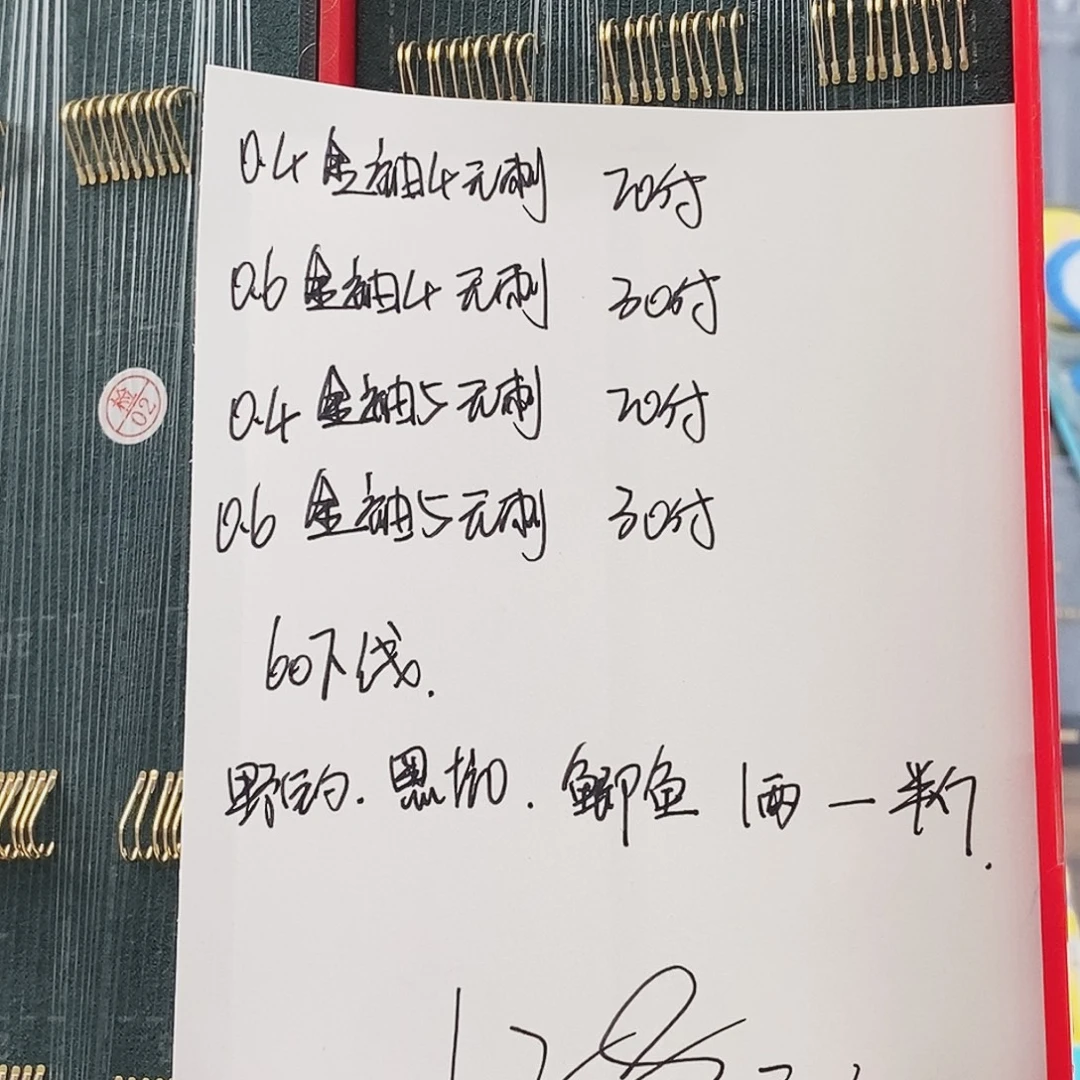 0.4 金袖4无刺 20付
0.6 金袖4无刺 30付
0.4 金袖5无刺 20付
0.6 金袖5无刺 30付
60下线.
野钓.黑坑.鲫鱼 1两一半斤.
检
02